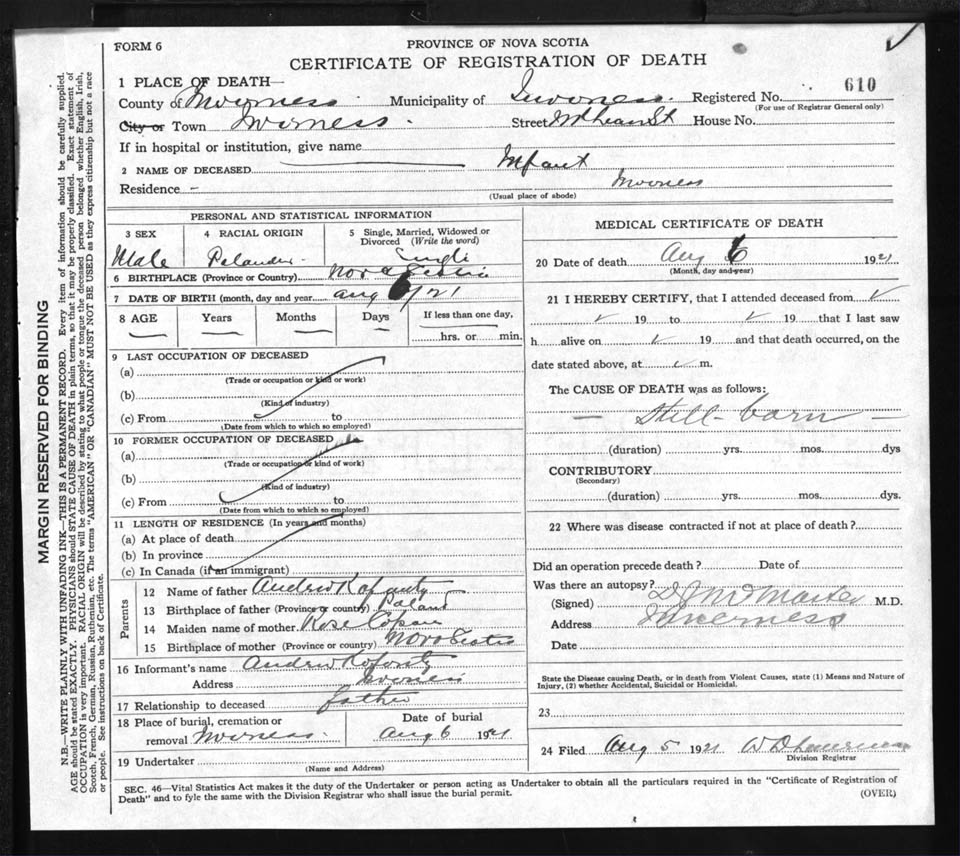 FORM 6
PROVINCE OF NOVA SCOTIA
CERTIFICATE OF REGISTRATION OF DEATH
1 PLACE OF DEATH—
County of Inverness Municipality of Inverness Registered No. 610
(For use of Registrar General only)
City or Town Inverness. Street House No.
If in hospital or institution, give name
2 NAME OF DECEASED Infant
Residence - Inverness
(Usual place of abode)
PERSONAL AND STATISTICAL INFORMATION
3 SEX
Male
4 RACIAL ORIGIN
Polander
5 Single, Married, Widowed or Divorced (Write the word)
Single
6 BIRTHPLACE (Province or Country) Nova Scotia
7 DATE OF BIRTH (month, day and year) Aug 6/21
8 AGE Years Months Days If less than one day,
hrs. or min.
9 LAST OCCUPATION OF DECEASED
(a)
(Trade or occupation or kind or work)
(b)
(Kind of industry)
(c) From to
(Date from which to which so employed)
10 FORMER OCCUPATION OF DECEASED
(a)
(Trade or occupation or kind of work)
(b)
(Kind of industry)
(c) From to
(Date from which to which so employed)
11 LENGTH OF RESIDENCE (In years and months)
(a) At place of death
(b) In province
(c) In Canada (if an immigrant)
Parents
12 Name of father Andrew
13 Birthplace of father (Province or country) Poland
14 Maiden name of mother Rose
15 Birthplace of mother (Province or country) Nova Scotia
16 Informant's name Andrew
Address Inverness
17 Relationship to deceased father
18 Place of burial, cremation or removal Inverness.
Date of burial
Aug 6 1921
19 Undertaker
(Name and Address)
MEDICAL CERTIFICATE OF DEATH
20 Date of death Aug 6 1921
(Month, day and year)
21 I HEREBY CERTIFY, that I attended deceased from
19 to 19 that I last saw
h alive on 19 and that death occurred, on the
date stated above, at m.
The CAUSE OF DEATH was as follows:
— Still-born —
(duration) yrs. mos. dys
CONTRIBUTORY
(Secondary)
(duration) yrs. mos. dys.
22 Where was disease contracted if not at place of death?
Did an operation precede death? Date of
Was there an autopsy?
(Signed) M.D.
Address Inverness
Date
State the Disease causing Death, or in death from Violent Causes, state (1) Means and Nature of
Injury, (2) whether Accidental, Suicidal or Homicidal.
23
24 Filed Aug 5 1921
Division Registrar
SEC. 46—Vital Statistics Act makes it the duty of the Undertaker or person acting as Undertaker to obtain all the particulars required in the "Certificate of Registration of
Death" and to fyle the same with the Division Registrar who shall issue the burial permit.
(OVER)
MARGIN RESERVED FOR BINDING
N.B.—WRITE PLAINLY WITH UNFADING INK—THIS IS A PERMANENT RECORD. Every item of information should be carefully supplied.
AGE should be stated EXACTLY. PHYSICIANS should STATE CAUSE OF DEATH in plain terms, so that it may be properly classified. Exact statement of
OCCUPATION is very important. RACIAL ORIGIN will be described by stating to what people or tongue the deceased person belonged whether English, Irish,
Scotch, French, German, Russian, Ruthenian, etc. The terms "AMERICAN" OR "CANADIAN" MUST NOT BE USED as they express citizenship but not a race
or people. See instructions on back of Certificate.